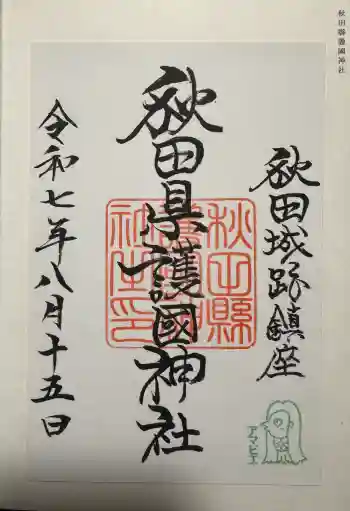 秋田縣護國神社
秋田城跡鎮座
秋田県護國神社
令和七年八月十五日
秋田縣護國神社印
アマビエ